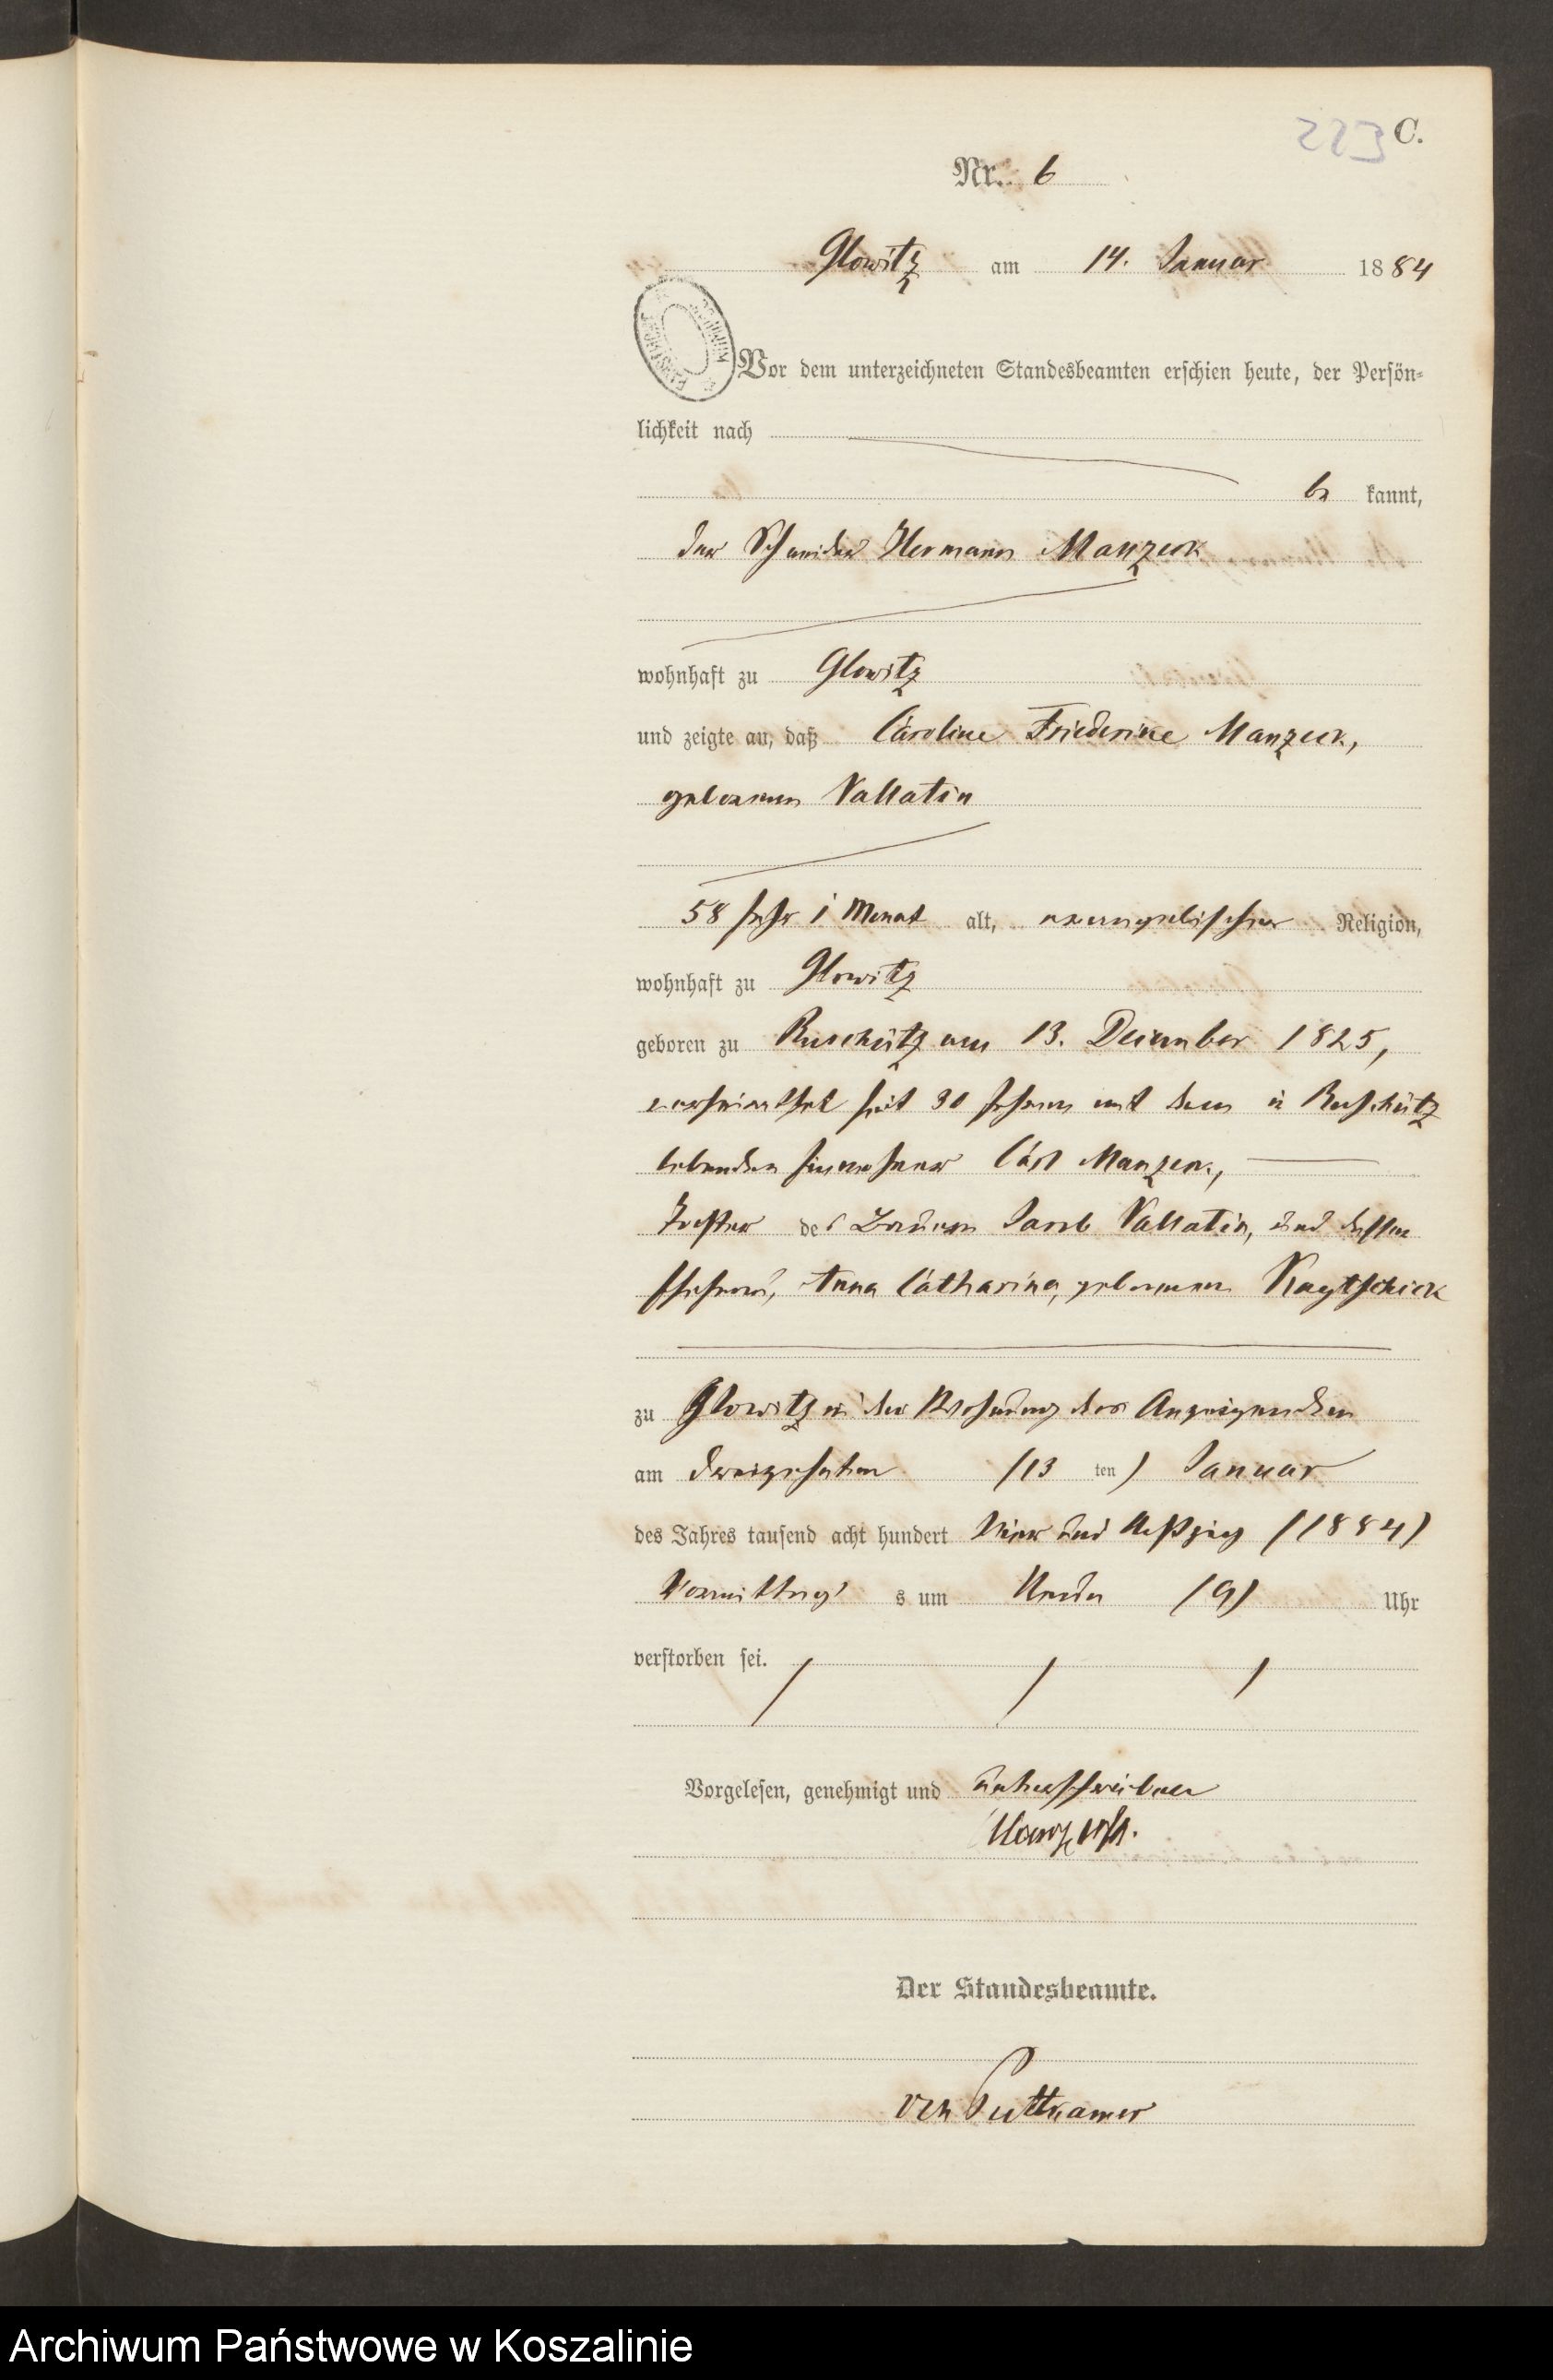 223 C.
Nr. 6
Glowitz am 14. Januar 1884
Vor dem unterzeichneten Standesbeamten erschien heute, der Persön-
lichkeit nach
be kannt,
der Schneider Hermann Manzeck
wohnhaft zu Glowitz
und zeigte an, daß Caroline Friederike Manzeck,
geborenen Vallatin
58 Jahr 1 Monat alt, evangelischer Religion,
wohnhaft zu Glowitz
geboren zu Ruschütz am 13. December 1825,
verheirathet seit 30 Jahren mit dem in Ruschütz
lebenden Einwohner Carl Manzeck,
Tochter des Bauern Jacob Vallatin, und dessen
Ehefrau, Anna Catharina, geborenen
zu Glowitz in der Wohnung des Anzeigenden
am dreizehnten (13 ten) Januar
des Jahres tausend acht hundert vier und achtzig (1884)
Vormittag s um Neun (9) Uhr
verstorben sei.
Vorgelesen, genehmigt und unterschrieben
Manzeck.
Der Standesbeamte.
von Puttkamer
Archiwum Państwowe w Koszalinie